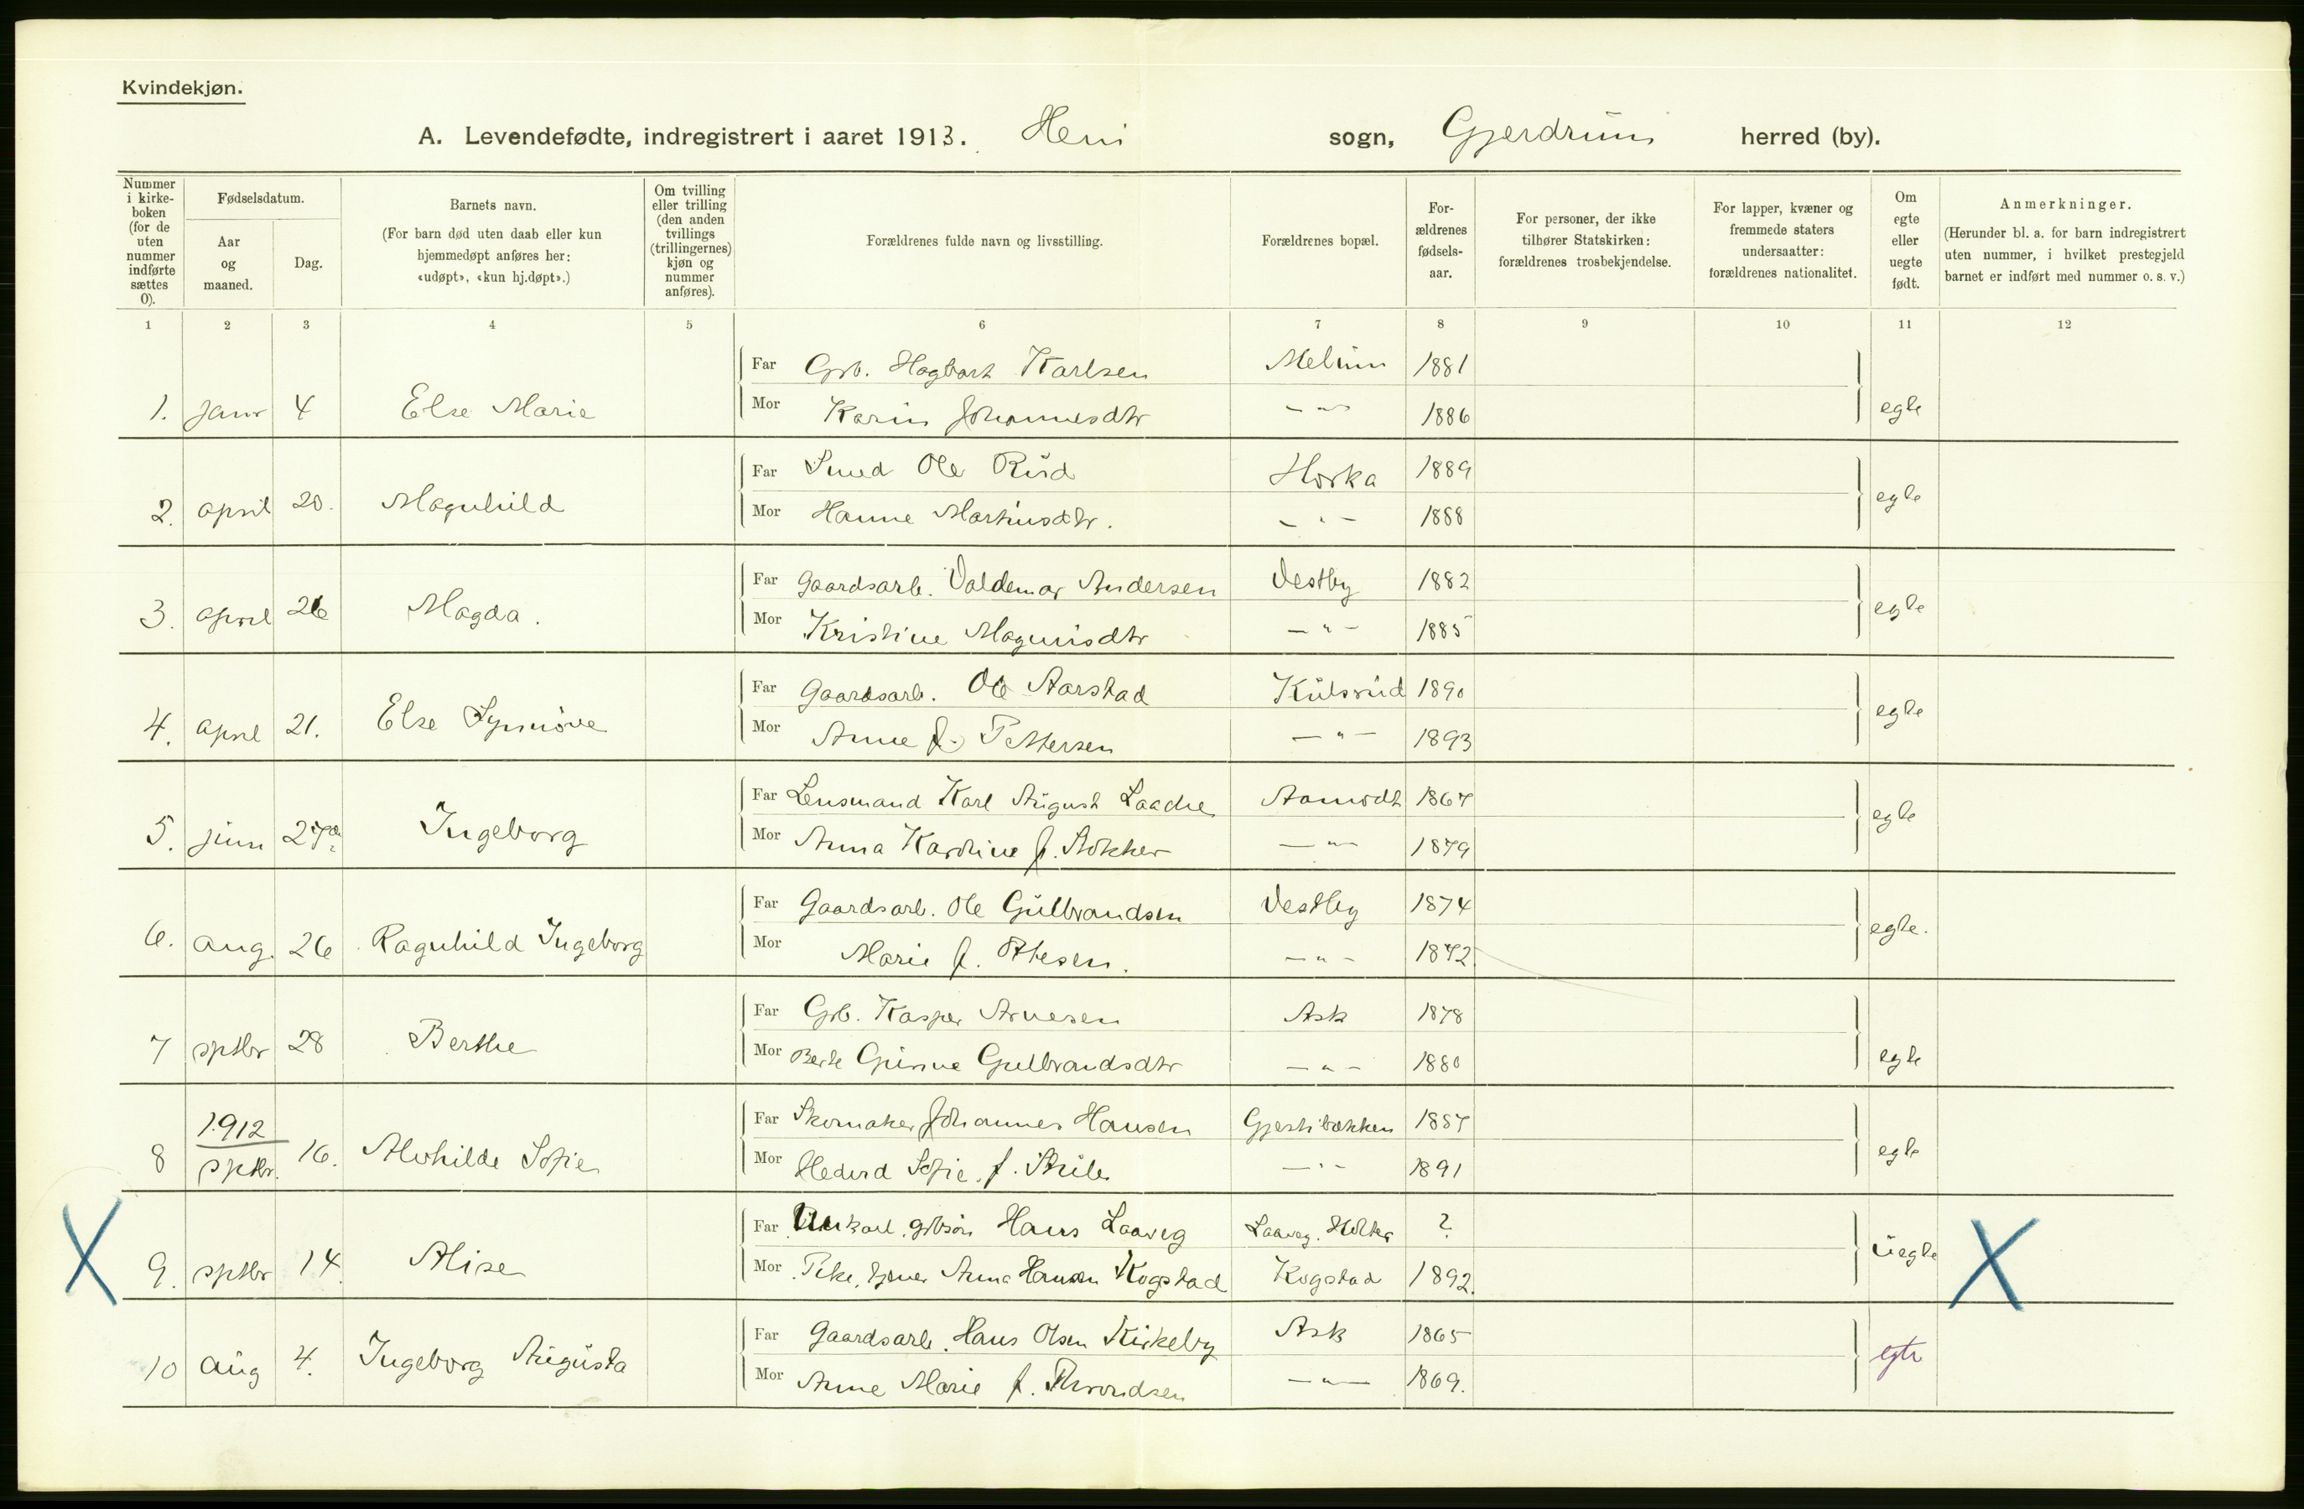 Kvindekjøn.
A. Levendefødte, indregistrert i aaret 1913. Heni sogn, Gjerdrum herred (by).
Nummer i kirkeboken (for de uten nummer indførte sættes 0).
Fødselsdatum.
Aar og maaned.
Dag.
Barnets navn.
(For barn død uten daab eller kun hjemmedøpt anføres her: «udøpt», «kun hj.døpt».)
Om tvilling eller trilling (den anden tvillings (trillingernes) kjøn og nummer anføres).
Forældrenes fulde navn og livsstilling.
Forældrenes bopæl.
Forældrenes fødselsaar.
For personer, der ikke tilhører Statskirken: forældrenes trosbekjendelse.
For lapper, kvæner og fremmede staters undersaatter: forældrenes nationalitet.
Om egte eller uegte født.
Anmerkninger.
(Herunder bl. a. for barn indregistrert uten nummer, i hvilket prestegjeld barnet er indført med nummer o. s. v.)
1 2 3 4 5 6 7 8 9 10 11 12
Far Grb. Hagbart Karlsen Melum 1881
1. janr 4 Else Marie Mor Karin Johannesdtr — " — 1886 egte
Far Smed Ole Rud Horka 1889
2. april 20. Magnhild Mor Hanne Martinusdtr. — " — 1888 egte
Far Gaardsarb. Valdemar Andersen Vestby 1882
3. april 26 Magda. Mor Kristine Magnusdtr — " — 1885 egte
Far Gaardsarb. Ole Aarstad Kulsrud 1890
4. april 21. Else Synnöve Mor Anne f. Pettersen — " — 1893 egte
Far Lensmand Karl August Laache Aamodt 1867
5. juni 27de Ingeborg Mor Anna Karoline f. Stokker — " — 1879 egte
Far Gaardsarb. Ole Gulbrandsen Vestby 1874
6. aug. 26 Ragnhild Ingeborg Mor Marie f. Ottesen. — " — 1872 egte.
Far Grb. Kasper Arnesen Ask 1878
7 sptbr 28 Berthe Mor Berte Gurine Gulbrandsdtr — " — 1880 egte
Far Skomaker Johannes Hansen Gjestibækken 1887
8 1912 sptbr. 16. Alvhilde Sofie Mor Hedvid Sofie f. — " — 1891 egte
Far Unkarl, grbsön Hans Laaveg Laaveg, Holter ?
9. sptbr 14. Alise Mor Pike, tjener Anna Hansen Kogstad Kogstad 1892. uegte
Far Gaardsarb. Hans Olsen Kirkeby Ask 1865
10 aug 4. Ingeborg Augusta Mor Anne Marie f. Throndsen — " — 1869. egte